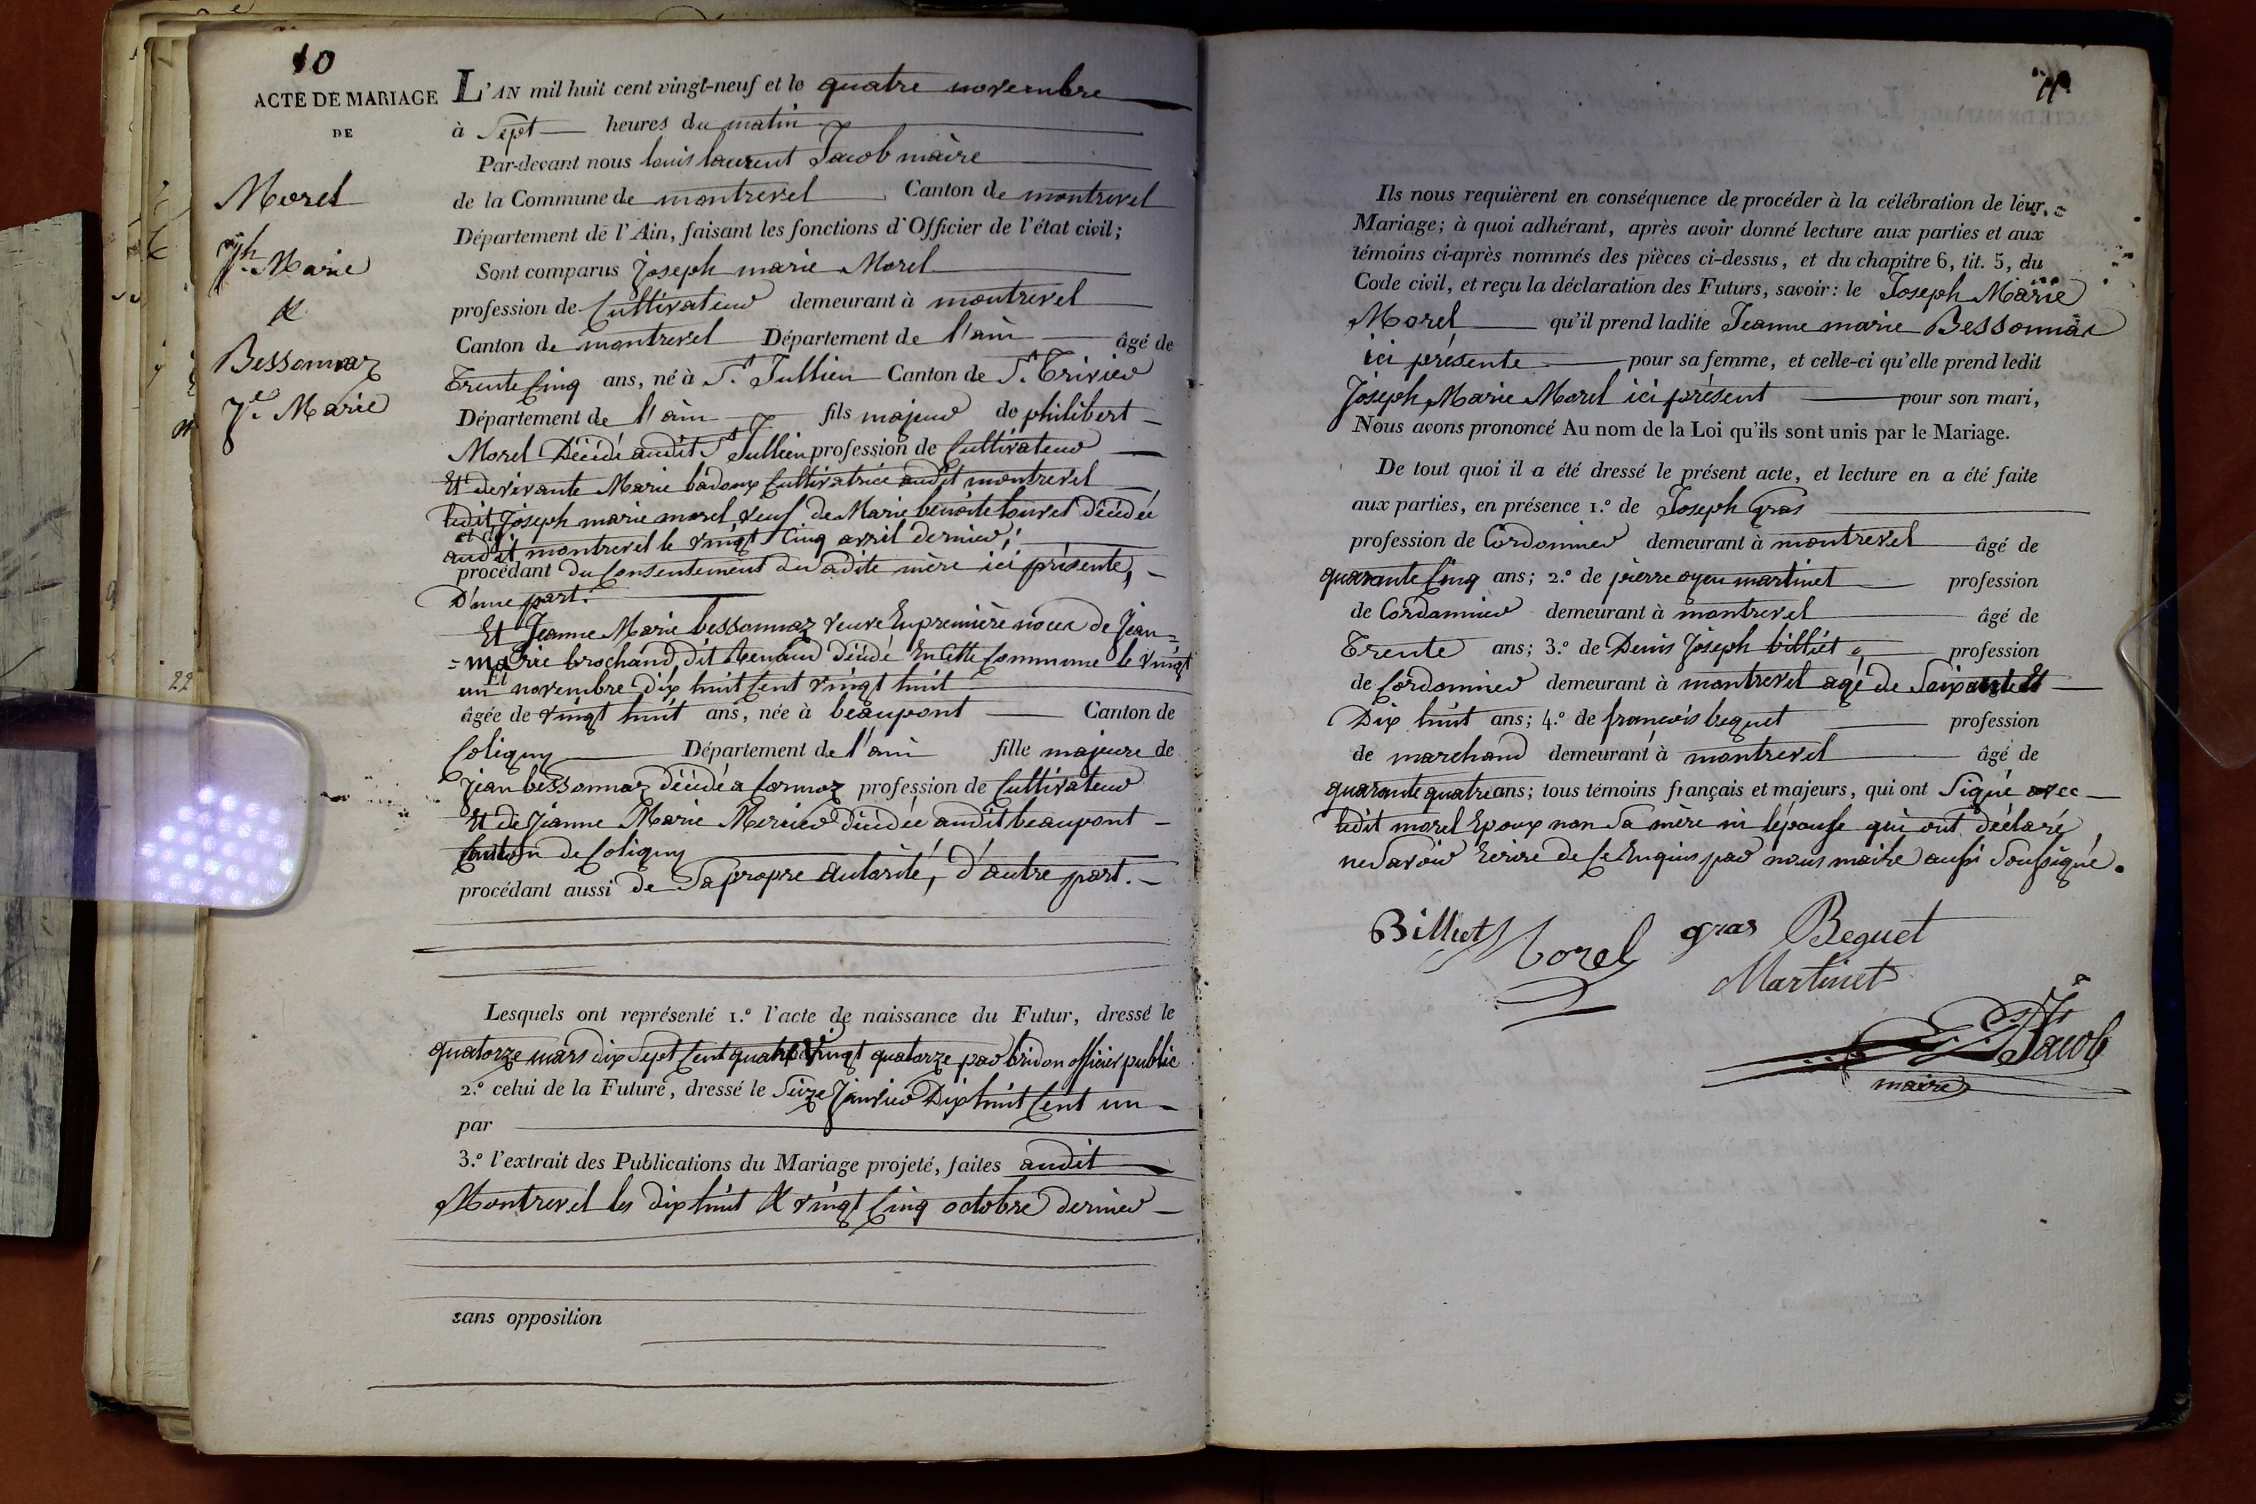 10
ACTE DE MARIAGE
DE
Morel
jh. Marie
&
Bessonnaz
Je. Marie
L'AN mil huit cent vingt-neuf et le quatre novembre
à Sept heures du matin
Par-devant nous louis laurent Jacob maire
de la Commune de montrevel Canton de montrevel
Département de l'Ain, faisant les fonctions d'Officier de l'état civil;
Sont comparus joseph marie Morel
profession de Cultivateur demeurant à montrevel
Canton de montrevel Département de l'ain âgé de
Trente Cinq ans, né à St. Jullien Canton de St. Trivier
Département de l'ain fils majeur de philibert
Morel Décédé audit St Jullien profession de Cultivateur
Et de vivante Marie badoux Cultivatrice audit montrevel
ledit joseph marie morel veuf de Marie benoite louvet décédée
et de
audit montrevel le vingt Cinq avril dernier;
procédant du Consentement de sadite mère ici présente,
D'une part.
Et Jeanne Marie bessonnaz veuve En première noces de Jean=
=Marie brochand, dit Renaud décédé En Cette Commune le vingt
un novembre dix huit Cent vingt huit
Et
âgée de vingt huit ans, née à beaupont Canton de
Coligny Département de l'ain fille majeure de
jean bessonnaz décédé a Cormoz profession de Cultivateur
Et de Jeanne Marie Mercier décédée audit beaupont
Canton de Coligny
procédant aussi de Sa propre autorité, d'autre part.
Lesquels ont représenté 1.º l'acte de naissance du Futur, dressé le
quatorze mars dix Sept Cent quatre Vingt quatorze par bridon officier public
2.º celui de la Future, dressé le Seize Janvier Dix huit Cent un
par
3.º l'extrait des Publications du Mariage projeté, faites audit
Montrevel les dix huit & vingt Cinq octobre dernier
sans opposition
11
Ils nous requièrent en conséquence de procéder à la célébration de leur
Mariage; à quoi adhérant, après avoir donné lecture aux parties et aux
témoins ci-après nommés des pièces ci-dessus, et du chapitre 6, tit. 5, du
Code civil, et reçu la déclaration des Futurs, savoir: le Joseph Marie
Morel qu'il prend ladite Jeanne marie Bessonnaz
ici présente pour sa femme, et celle-ci qu'elle prend ledit
Joseph Marie Morel ici présent pour son mari,
Nous avons prononcé Au nom de la Loi qu'ils sont unis par le Mariage.
De tout quoi il a été dressé le présent acte, et lecture en a été faite
aux parties, en présence 1.º de Joseph Gras
profession de Cordonnier demeurant à montrevel âgé de
quarante Cinq ans; 2.º de pierre oyen martinet profession
de Cordonnier demeurant à montrevel âgé de
Trente ans; 3.º de Denis Joseph billiet profession
de Cordonnier demeurant à montrevel agé de Soixante Et
Dix huit ans; 4.º de francois beguet profession
de marchand demeurant à montrevel âgé de
quarante quatre ans; tous témoins français et majeurs, qui ont Signé avec
ledit morel Epoux non Sa mère ni l'épouse qui ont déclaré
ne Savoir Ecrire de Ce Enquis par nous maire aussi Soussigné.
Billiet Morel gras Beguet
Martinet
Jacob
maire